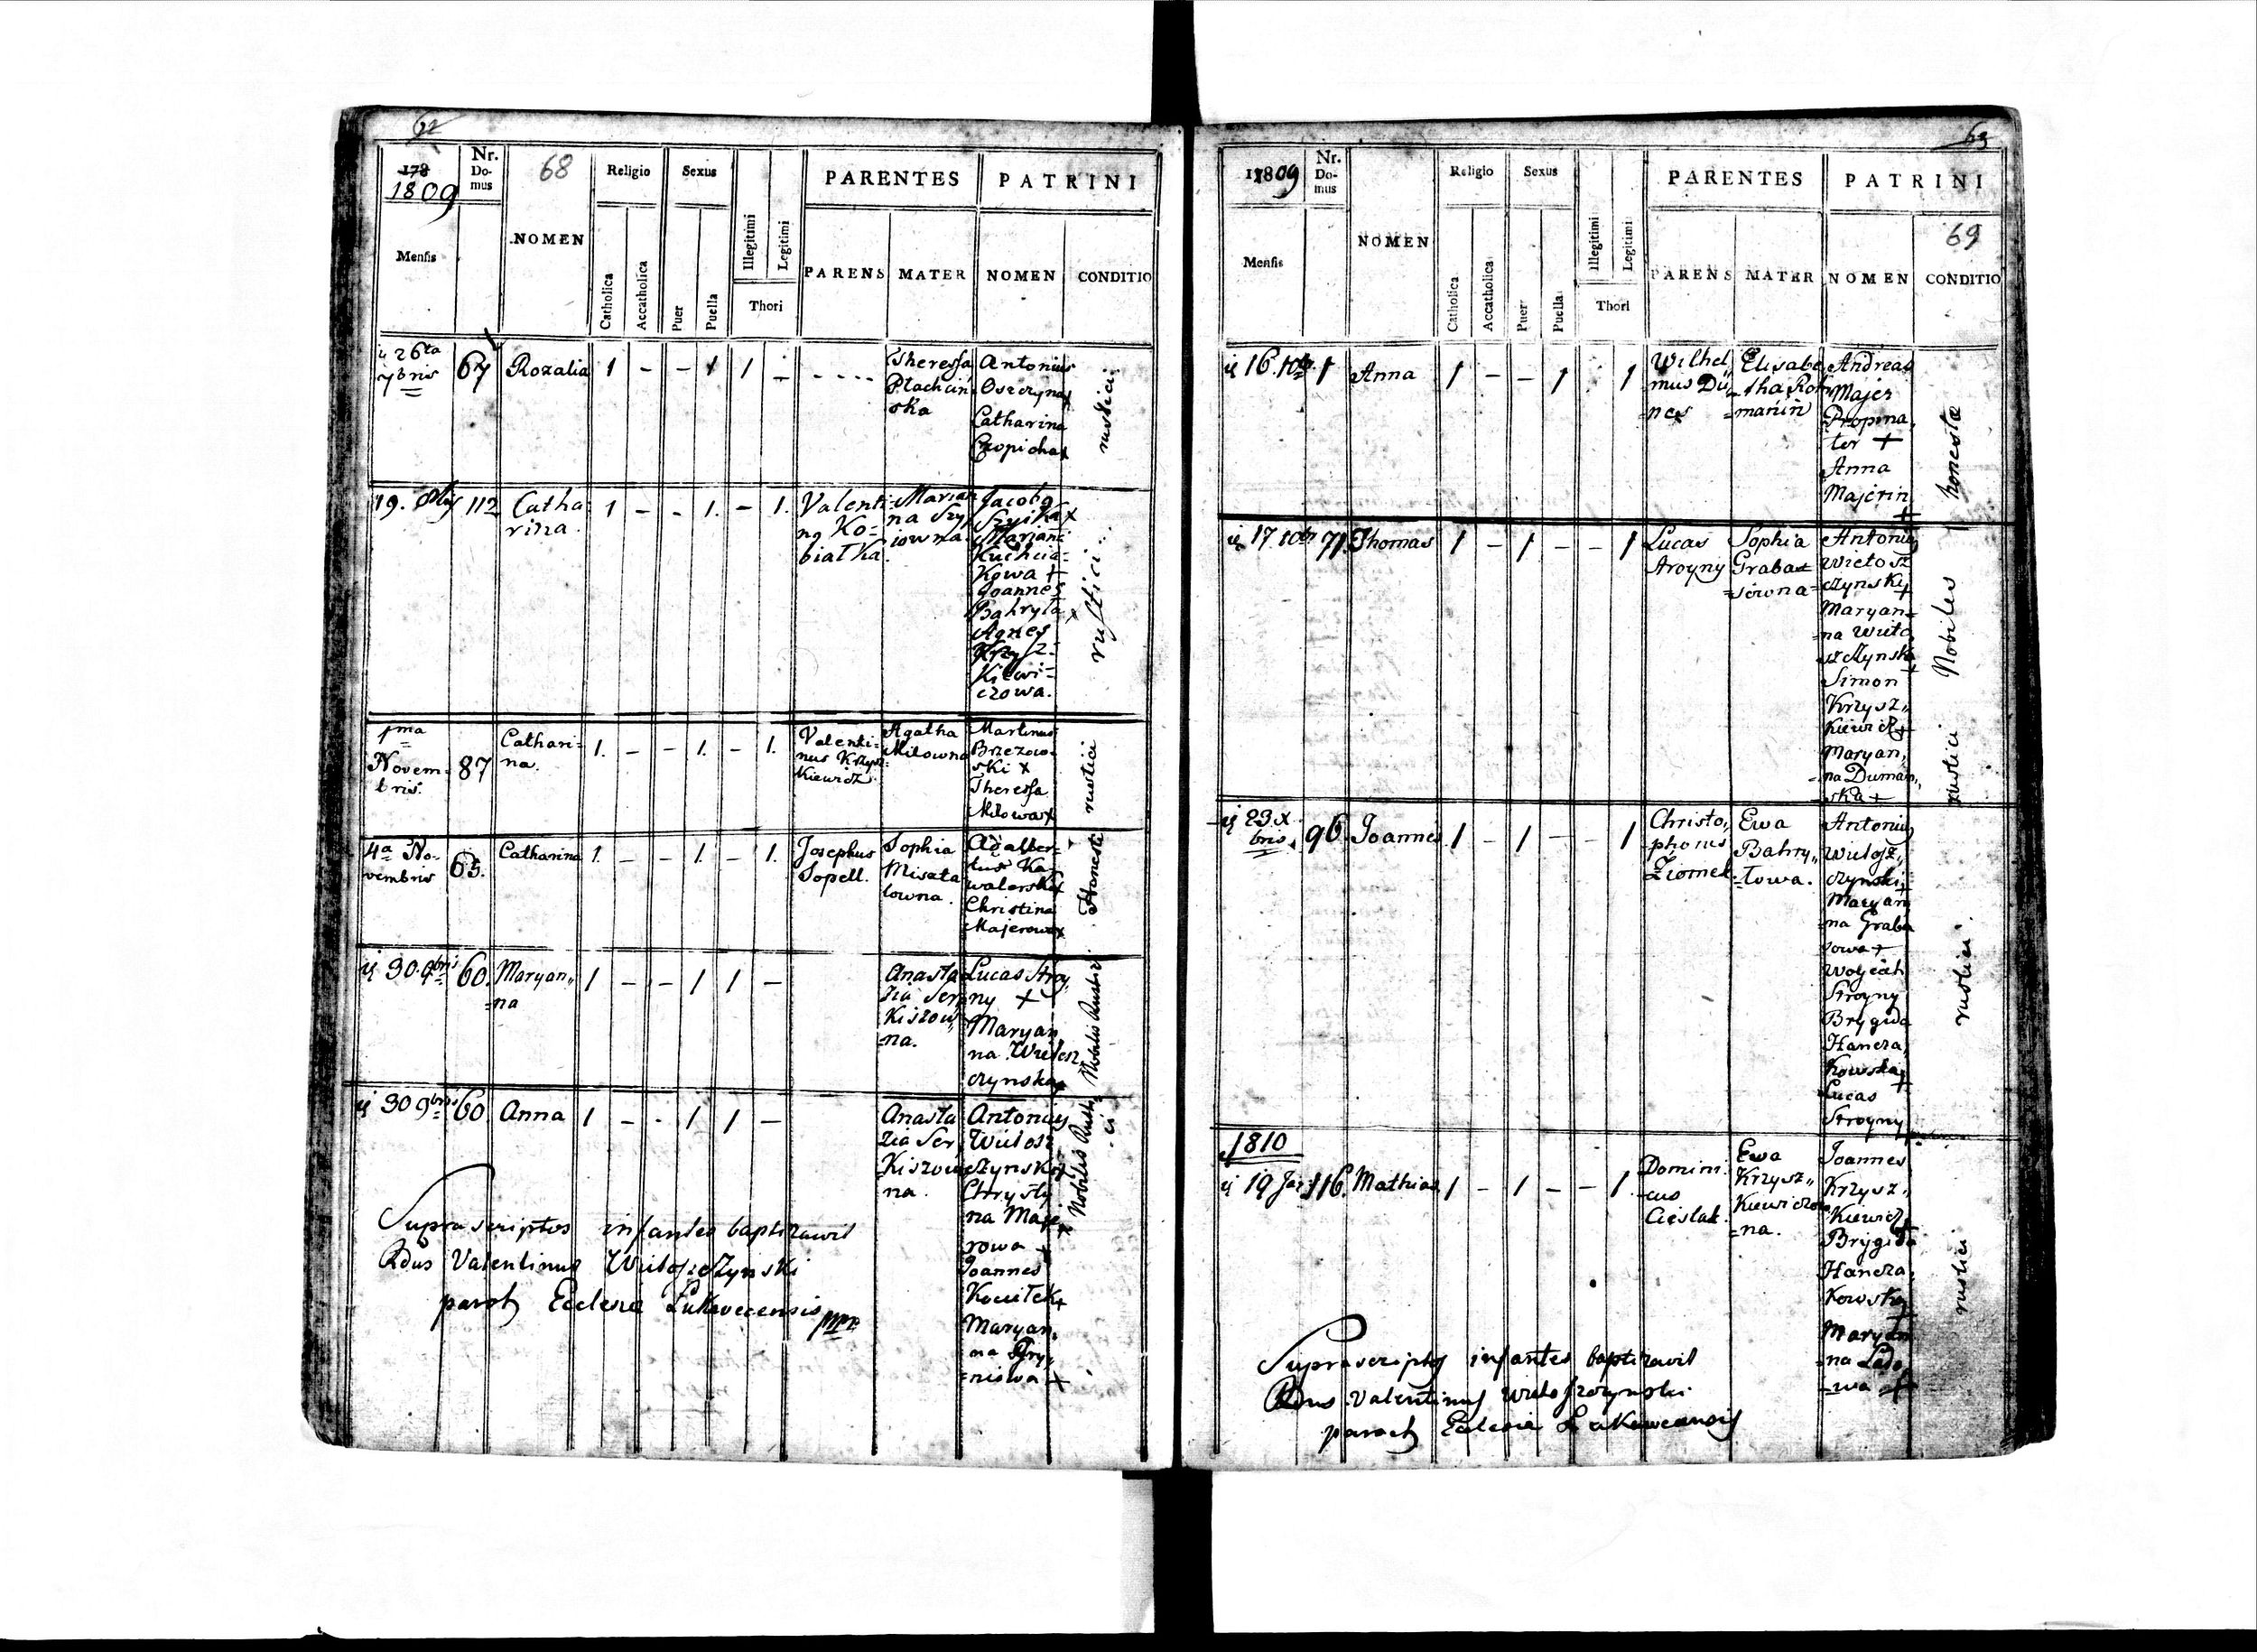 62
178
1809
Nr.
Do-
mus
68
Religio
Sexus
PARENTES
PATRINI
Mensis
NOMEN
Catholica
Accatholica
Puer
Puella
Illegitimi
Legitimi
Thori
PARENS
MATER
NOMEN
CONDITIO
26ta
7bris
67
Rozalia
1 - - 1 1 -
Theressa
Plachcin
ska
Antonius
Catharina
rustici
19.
112
Catha
rina.
1 - - 1. - 1.
Valenti
Ko-
białka.
Marian
na Szy
iowna
Jacobo
Mariana
Kuchcia-
Kowa +
Joannes
Bahryła x
Agnes
Krzysz-
Kiewi-
czowa.
rustici
1ma
Novem-
bris.
87
Cathari-
na.
1. - - 1. - 1.
Valenti-
nus Krzysz-
Kiewicz.
Agatha
Miłowna
Martinus
Brzezow-
ski x
Theressa
Miłowa x
rustici
4a No-
vembris
63.
Catharina
1. - - 1. - 1.
Josephus
Sopell.
Sophia
Misata
lowna.
Adalber-
tus Ka
walerski x
Christina
Majerowa x
Honesti
ij 30. 9bris
60.
Maryan„
=na
1 - - 1 1 -
Anasta
zia Ser
Kiszow
=na.
Lucas Stroy
ny +
Maryan
na Wietosz
czynska
Nobilis Rustici
ij 30 9bris
60.
Anna
1 - - 1 1 -
Anasta
zia Ser
Kiszow
na.
Antonius
Wietosz
czynski
Chrysty
na Maje
rowa +
Joannes
Maryan.
na
+
Nobilis
Suprascriptos infantes baptizavit
Rdus Valentinus Wietoszczynski
paroch Eclesie Lukavecensis mpp
63
1809
Nr.
Do-
mus
Religio
Sexus
PARENTES
PATRINI
69
Mensis
NOMEN
Catholica
Accatholica
Puer
Puella
Illegitimi
Legitimi
Thori
PARENS
MATER
NOMEN
CONDITIO
ij 16. 10br
1
Anna
1 - - 1 1
Wilhel„
mus Dü
=nes
Elisabe
=tha Roh
=manin
Andreas
Majer
Propina
tor +
Anna
Majerin
+
honeste
ij 17 10br
71.
Thomas
1 - 1 - - 1
Lucas
Stroyny
Sophia
Graba
=siowna
Antonius
Wietosz
czynsky
Maryan=
=na Wieto
szczynska
Simon
Krzysz„
Kiewicz +
Maryan„
=na Duman„
=ska +
Nobiles
rustici
ij 23 x
bris.
96.
Joannes
1 - 1 - - 1
Christo„
phorus
Ziomek.
Ewa
Bahry„
=łowa.
Antonius
Wietosz„
czynski +
Maryan
=na Graba
sowa +
Woyciech
Stroyny
Brygida
Hancza„
Kowska +
Lucas
Stroyny
rustici
1810
ij 19 Jan
116.
Mathias
1 - 1 - - 1
Domini
=cus
Cieslak.
Ewa
Krzysz„
Kiewiczow
=na.
Joannes
Krzysz„
Kiewicz +
Brygida
Hancza„
Kowska +
Maryan
=na Lado
=wa +
rustici
Suprascriptos infantes baptizavit
Rdus Valentinus Wietoszczynski
paroch Eclesie Lukawecensis